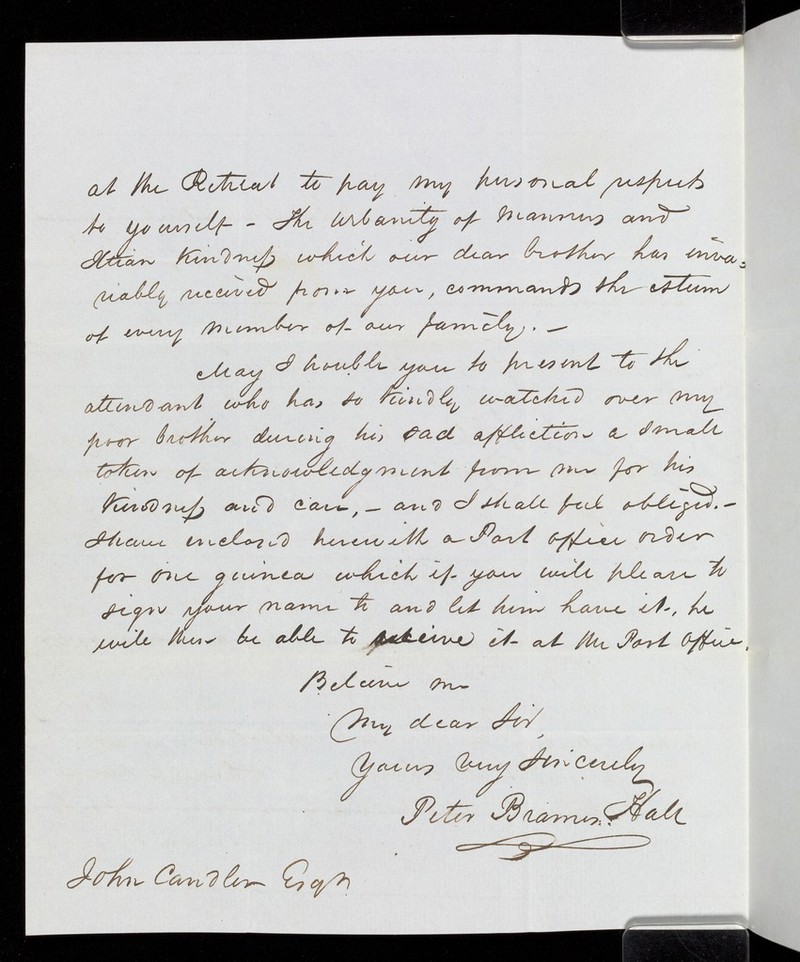 at the Retreat to pay my personal respects
to yourself - The urbanity of manners and
Xtian kindness which our dear brother has inva=
riably received from you, commands the esteem
of every member of our family. -
May I trouble you to present to the
attendant who has so kindly watched over my
poor brother during his sad affliction a small
token of acknowledgment from me for his
kindness and care, - and I shall feel obliged. -
I have enclosed herewith a Post office order
for one guinea which if you will please to
sign your name to and let him have it, he
will then be able to receive it at the Post Office.
Believe me
My dear Sir,
Yours very sincerely
Peter Hall
John Candler Esqr